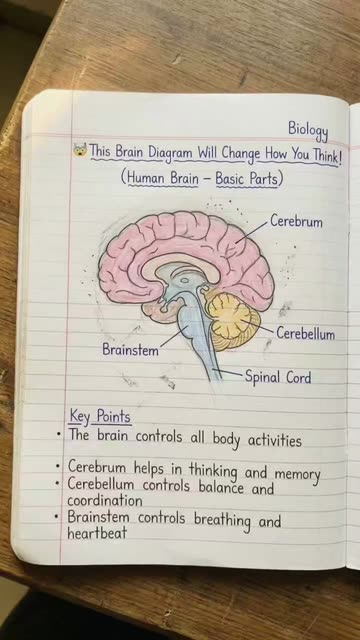 Biology
🤯 This Brain Diagram Will Change How You Think!
(Human Brain – Basic Parts)
Cerebrum
Cerebellum
Brainstem
Spinal Cord
Key Points
• The brain controls all body activities
• Cerebrum helps in thinking and memory
• Cerebellum controls balance and
coordination
• Brainstem controls breathing and
heartbeat